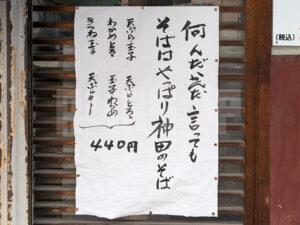 何んだ神だ言っても
そばはやっぱり神田のそば
天ぷら玉子
わかめとろろ
きつね玉子
天ぷらとろろ
玉子わかめ
天ぷらカレー
440円
(税込)